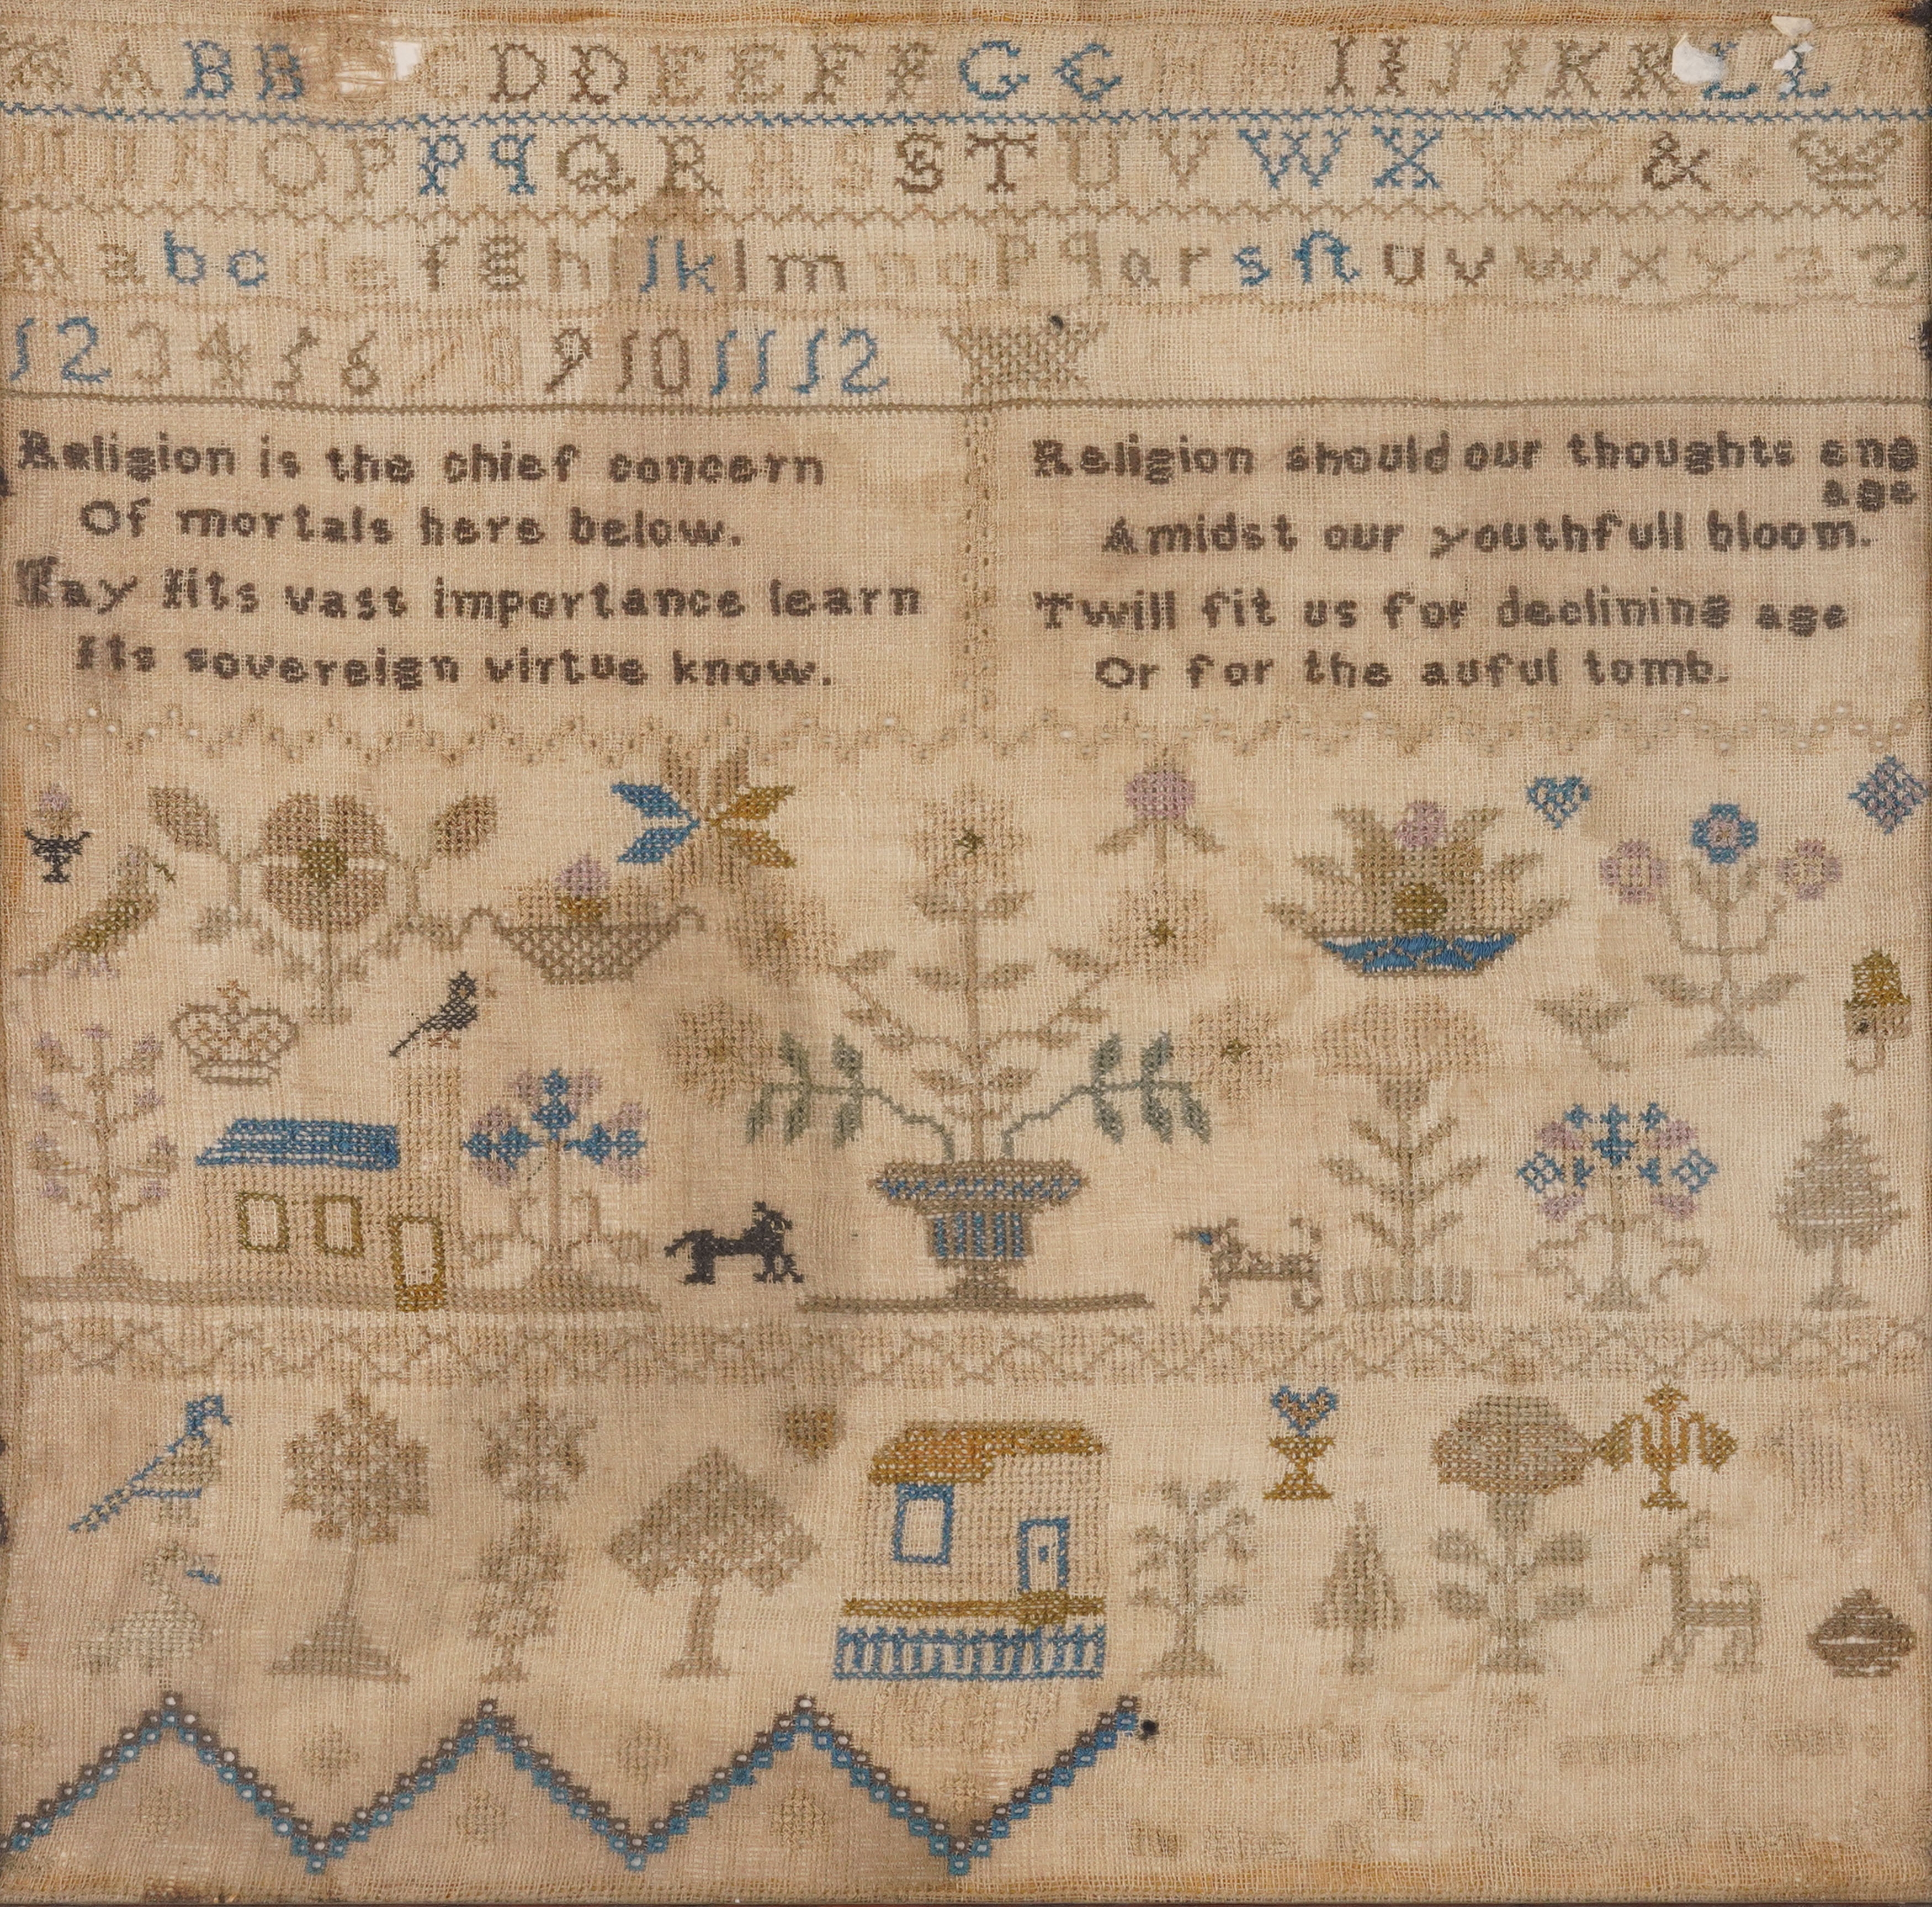 A A B B C D D E E F F G G H H I I J J K K L L
N O P P q Q R R S S T U V W X Y Z &
A a b c d e f g h i J k l m n o p q a r s ſt u v w x y z z
1 2 3 4 5 6 7 8 9 10 11 12
Religion is the chief concern
Of mortals here below.
May Iits vast importance learn
Its sovereign virtue know.
Religion should our thoughts eng
age
Amidst our youthfull bloom.
Twill fit us for declining age
Or for the auful tomb.